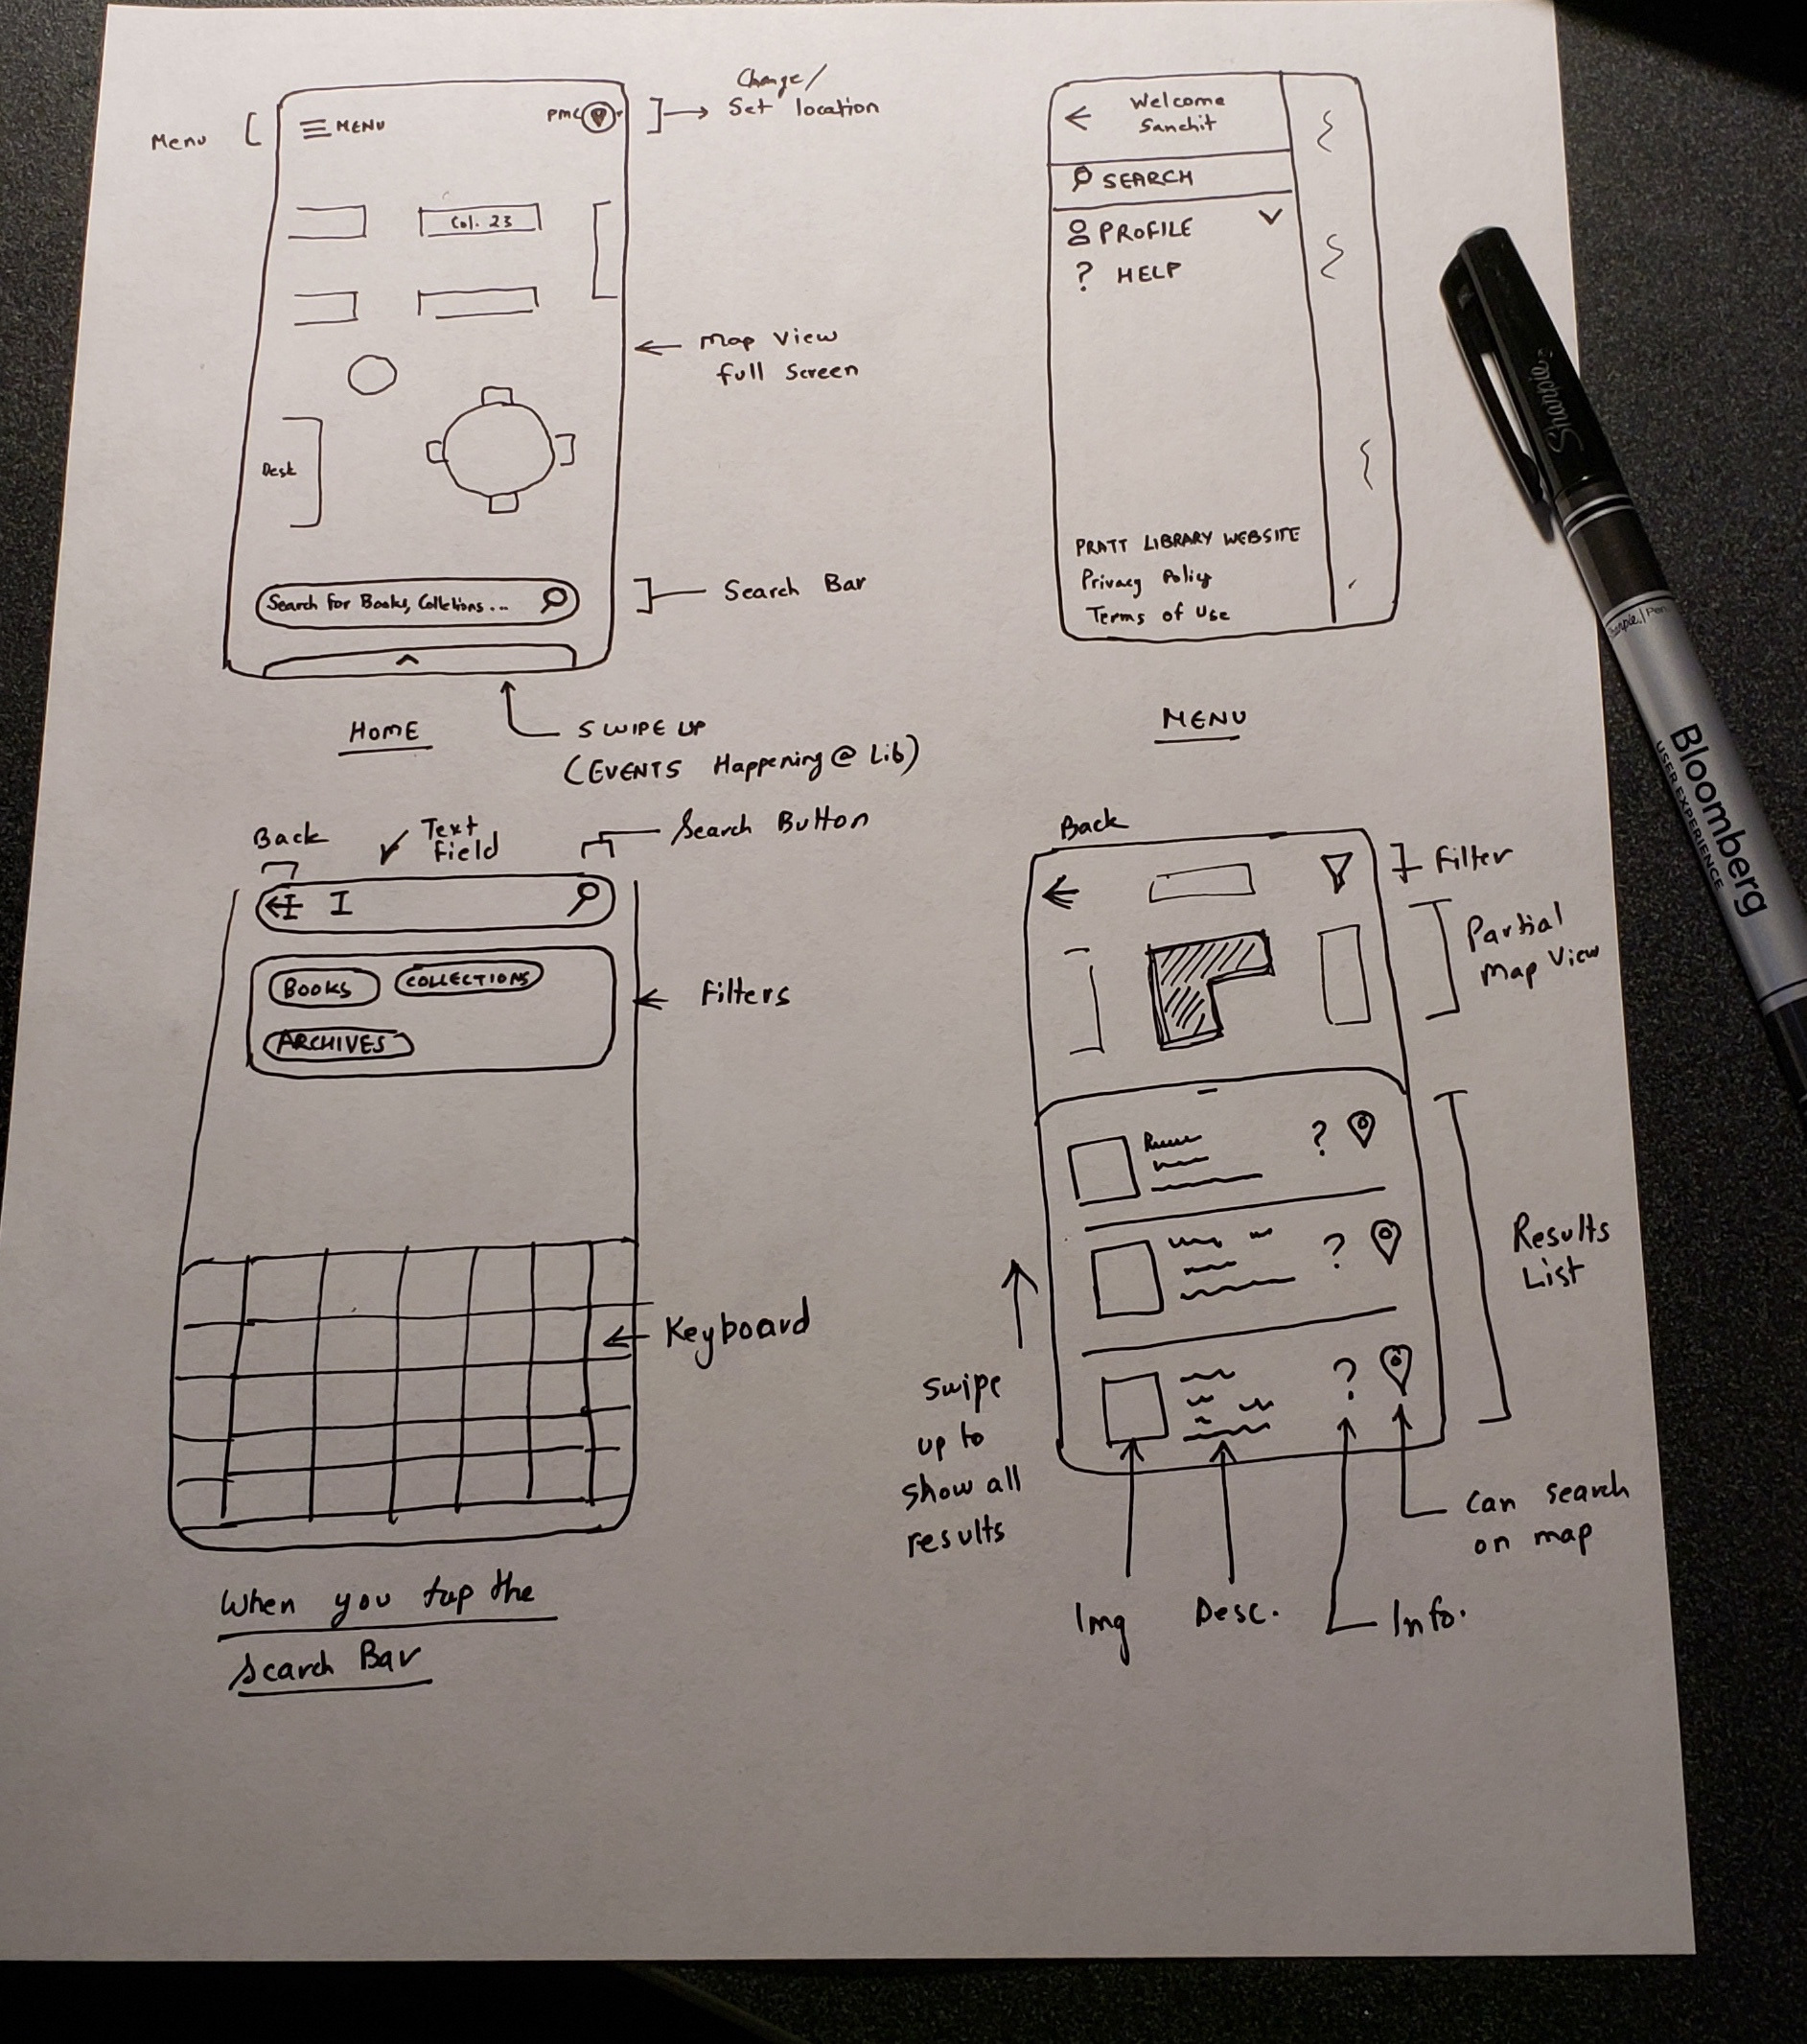 Menu
MENU
PMC
Change/
Set location
Col. 23
Map View
full Screen
Desk
Search for Books, Colletions...
Search Bar
HOME
SWIPE UP
(EVENTS Happening @ Lib)
Welcome
Sanchit
SEARCH
PROFILE
? HELP
PRATT LIBRARY WEBSITE
Privacy Policy
Terms of Use
MENU
Back
Text
field
Search Button
I
BOOKS
COLLECTIONS
ARCHIVES
Filters
Keyboard
When you tap the
Search Bar
Back
Filter
Partial
Map View
?
?
?
Results
List
Swipe
up to
show all
results
Img
Desc.
Info.
Can search
on map
Sharpie
Sharpie. | Pen
Bloomberg
USER EXPERIENCE